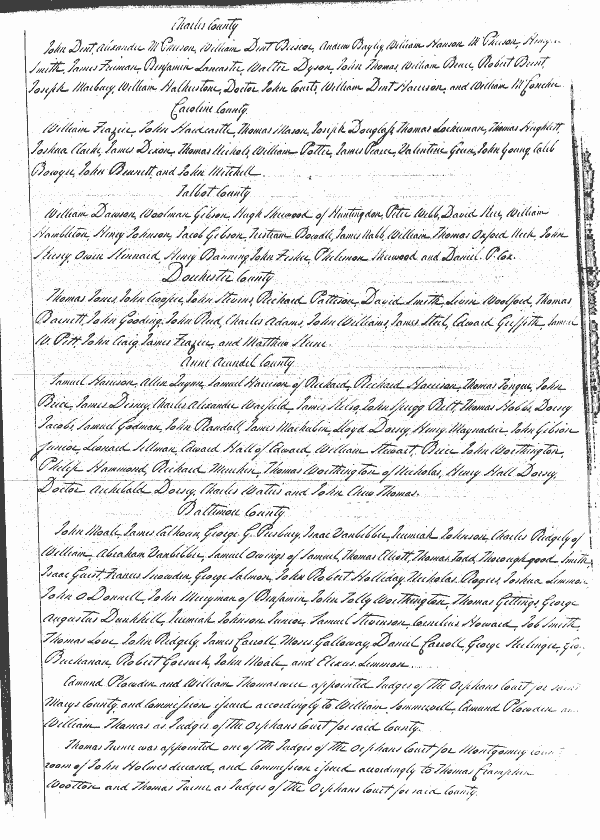 Charles County
John Dent, Alexander McPherson, William Dent Briscoe, Andrew Bayly, William Hanson McPherson, Henry
Smith, James Freeman, Benjamin Lancaster, Walter Dyson, John Thomas, William Bruce, Robert Brent
Joseph Marbury, William Hatherston, Doctor John Courts, William Dent Harrison, and William McConchie
Caroline County
William Frazier, John Hardcastle, Thomas Mason, Joseph Douglass, Thomas Lockerman, Thomas Hughlett
Joshua Clarke, James Dixon, Thomas Nichols, William Potter, James Pearce, Valentine Green, John Young, Caleb
Bowyer, John Bennett, and John Mitchell.
Talbot County
William Dawson, Woolman Gibson, Hugh Sherwood of Huntingdon, Peter Webb, David Kerr, William
Hambleton, Henry Johnson, Jacob Gibson, Tristram Bowdle, James Nabb, William Thomas Oxford Neck, John
Kersey, Owen Kennard, Henry Banning, John Fisher, Philemon Sherwood and Daniel P. Cox.
Dorchester County
Thomas Jones, John Cooper, John Stevens, Richard Pattison, David Smith, Levin Woolford, Thomas
Barnett, John Gooding, John Reed, Charles Adams, John Williams, James Steel, Edward Griffith, Samuel
W. Pitt, John Craig, James Frazier, and Matthew Keene.
Anne Arundel County
Samuel Harrison, Allen Quynn, Samuel Harrison of Richard, Richard Harrison, Thomas Tongue, John
Brice, James Disney, Charles Alexander Warfield, James Kelso, John Sprigg Belt, Thomas Hobbs, Dorsey
Jacobs, Samuel Godman, John Randall, James Mackubin, Lloyd Dorsey, Henry Maynadier, John Gibson
Junior, Leonard Sellman, Edward Hall of Edward, William Stewart, Brice John Worthington,
Philip Hammond, Richard Merriken, Thomas Worthington of Nicholas, Henry Hall Dorsey,
Doctor Archibald Dorsey, Charles Waters and John Chew Thomas.
Baltimore County
John Moale, James Calhoun, George G. Presbury, Isaac Vanbibber, Jeremiah Johnson, Charles Ridgely of
William, Abraham Vanbibber, Samuel Owings of Samuel, Thomas Elliott, Thomas Todd, Thoroughgood Smith,
Isaac Guest, Francis Snowden, George Salmon, John Robert Holliday, Nicholas Rogers, Joshua Lemmon
John O Donnell, John Merryman of Benjamin, John Tolly Worthington, Thomas Gittings, George
Augustus Dunkhell, Jeremiah Johnson Junior, Samuel Stevenson, Cornelius Howard, Job Smith
Thomas Love, John Ridgely, James Carroll, Moses Galloway, Daniel Carroll, George
Buchanan, Robert Gorsuch, John Moale, and Elexus Lemmon.
Edmund Plowden and William Thomas were appointed Judges of the Orphans Court for saint
Marys County, and Commission issued accordingly to William Sommervell, Edmund Plowden an
William Thomas as Judges of the Orphans Court for said County.
Thomas Turner was appointed one of the Judges of the Orphans Court for Montgomery county
room of John Holmes deceased, and Commission issued accordingly to Thomas Cramphin
Wootton and Thomas Turner as Judges of the Orphans Court for said County.